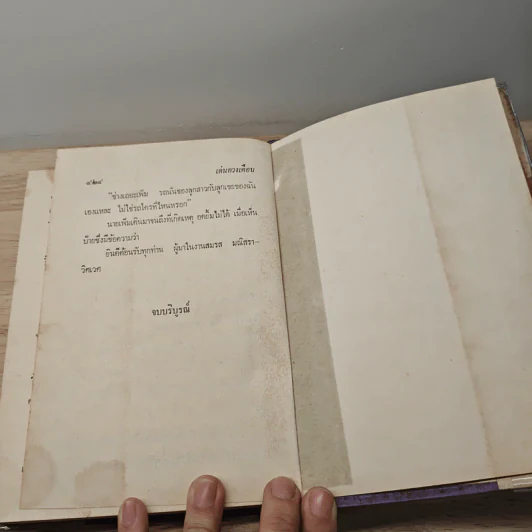 ๔๒๔ เด่นดวงเดือน
"ช่างเถอะเพิ่ม รถนั่นของลูกสาวกับลูกเขยของฉัน
เองแหละ ไม่ใช่รถใครที่ไหนหรอก"
นายเพิ่มเดินมาจนถึงที่เกิดเหตุ อดยิ้มไม่ได้ เมื่อเห็น
ป้ายซึ่งมีข้อความว่า
ยินดีต้อนรับทุกท่าน ผู้มาในงานสมรส มณิสรา–
วิศเวศ
จบบริบูรณ์